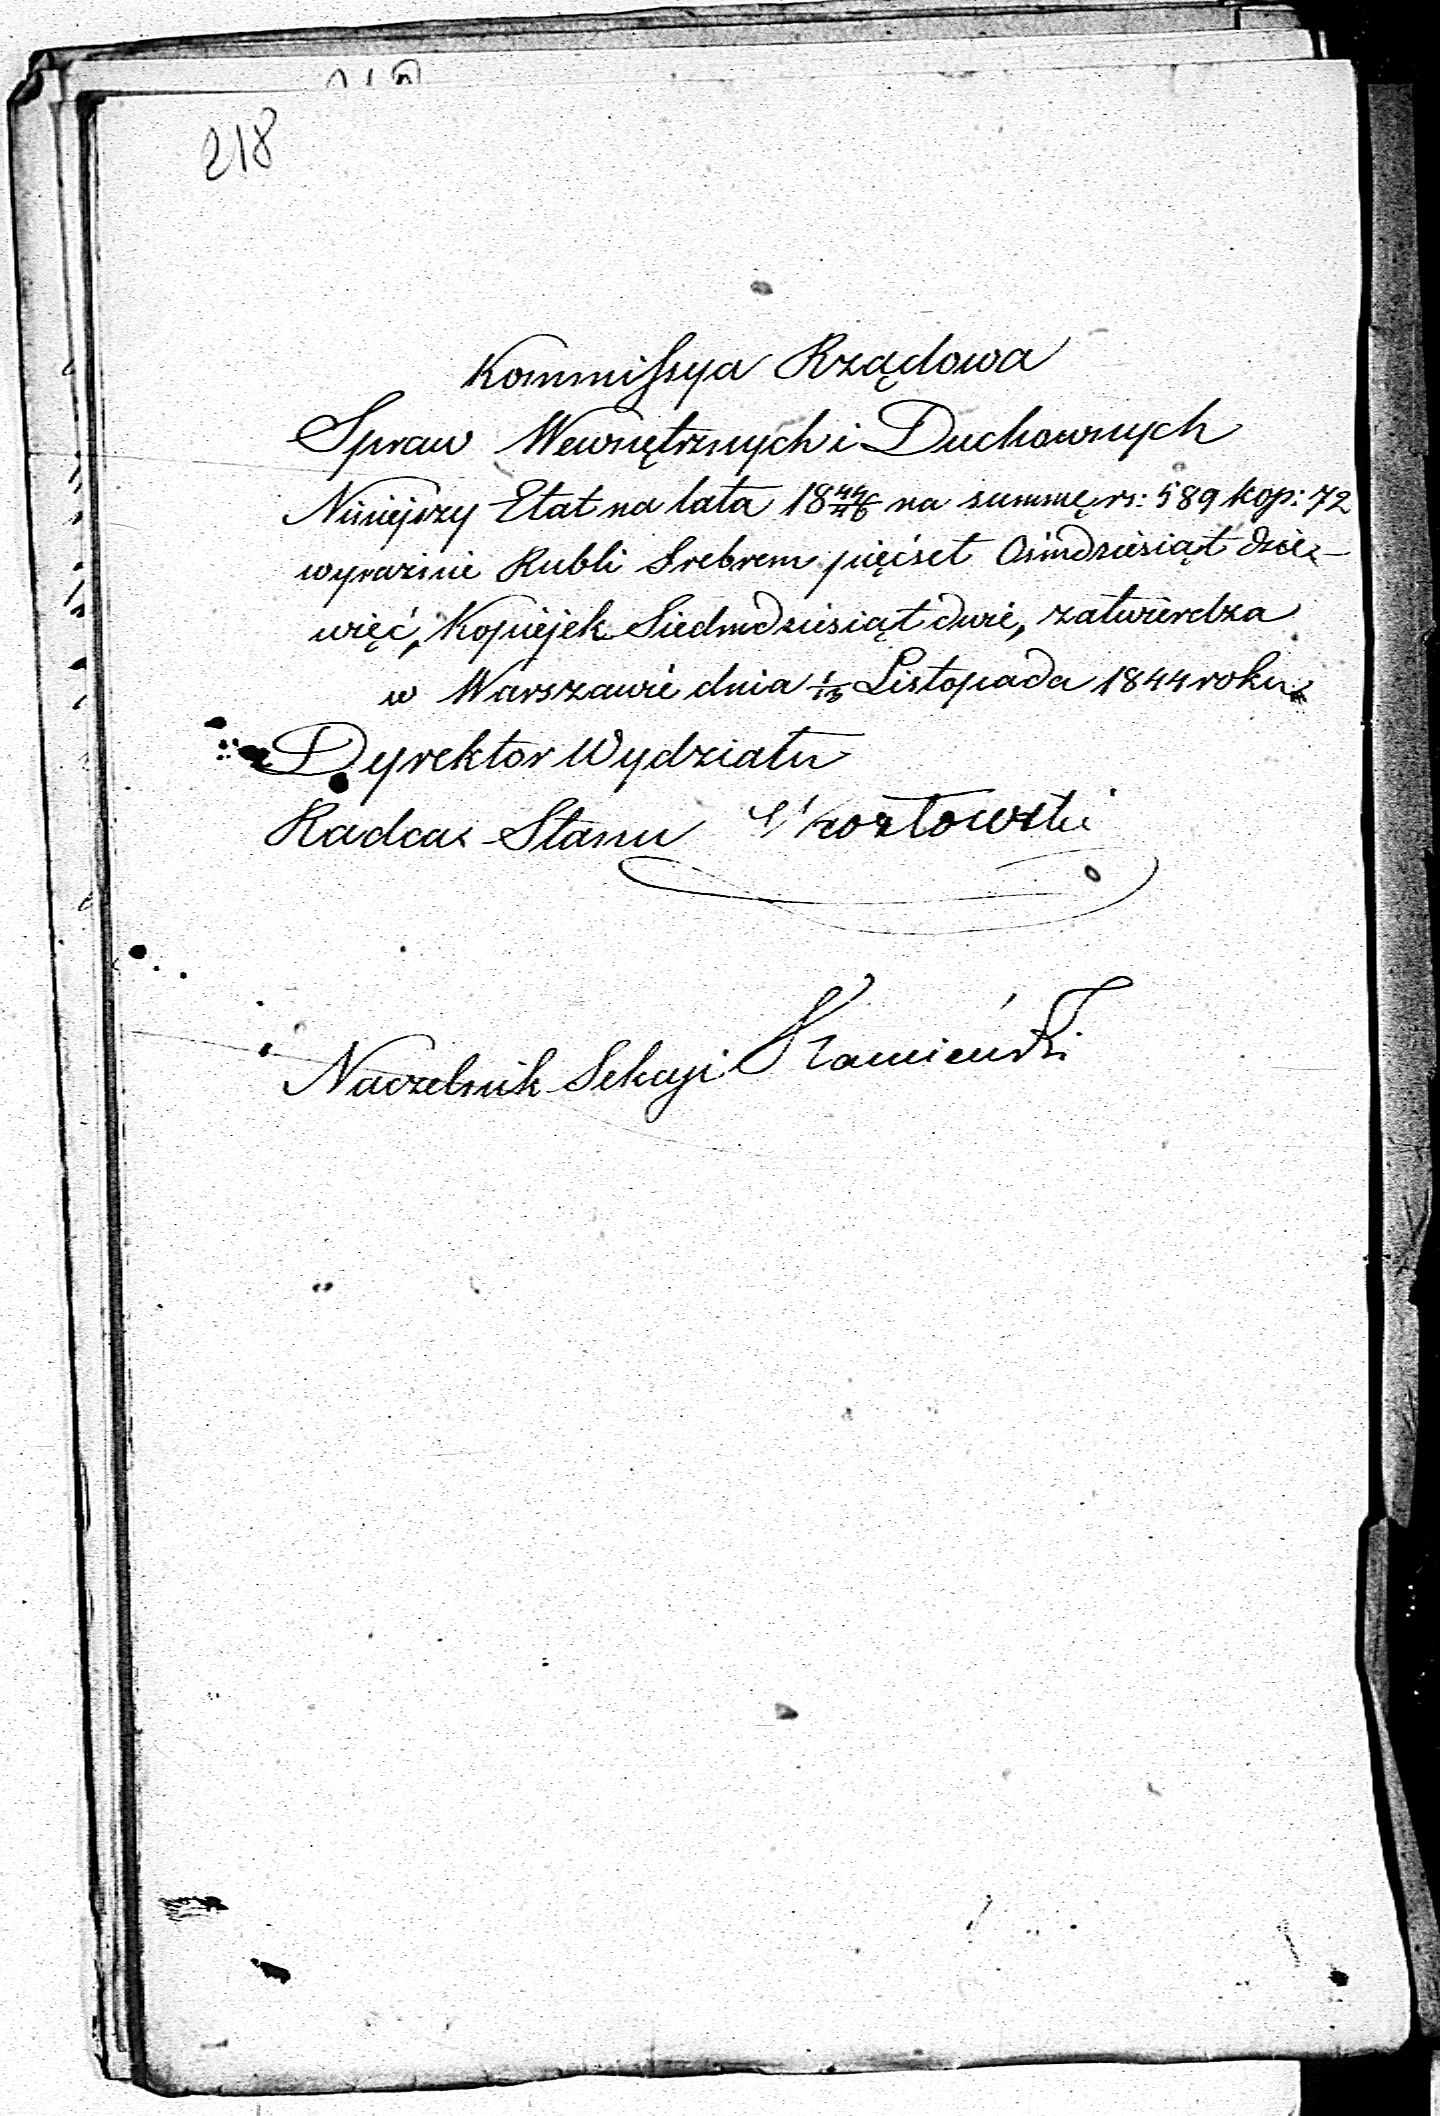 218
Kommissya Rządowa
Spraw Wewnętrznych i Duchownych
Niniejszy Etat na lata 18 44/46 na summę rs: 589 kop: 72
wyraźnie Rubli Srebrem pięćset Ośmdziesiąt dzie-
więć, Kopiejek Siedmdziesiąt dwie, zatwierdza
w Warszawie dnia Listopada 1844 roku
Dyrektor Wydziału
Radca Stanu Kozłowski
Naczelnik Sekcyi Kamieński